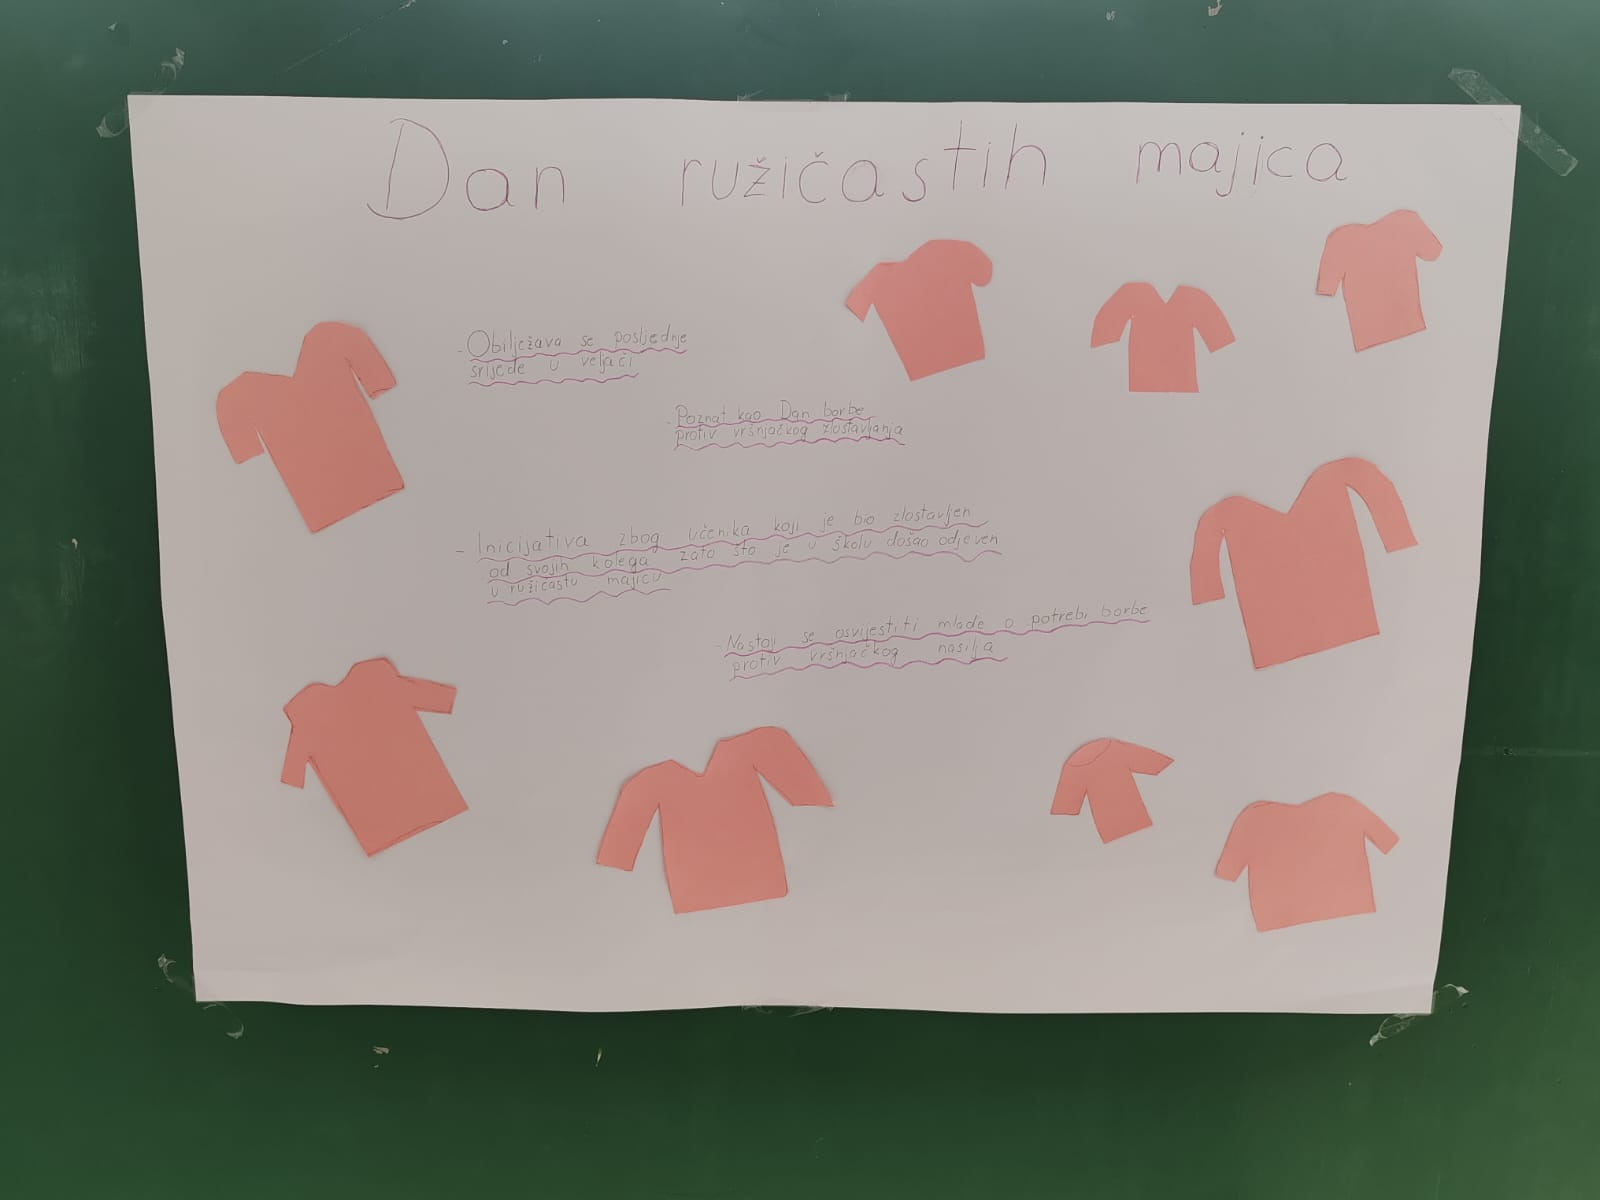 Dan ružičastih majica
- Obilježava se posljednje
srijede u veljači
- Poznat kao Dan borbe
protiv vršnjačkog zlostavljanja
- Inicijativa zbog učenika koji je bio zlostavljen
od svojih kolega zato što je u školu došao odjeven
u ružičastu majicu
- Nastoji se osvijestiti mlade o potrebi borbe
protiv vršnjačkog nasilja